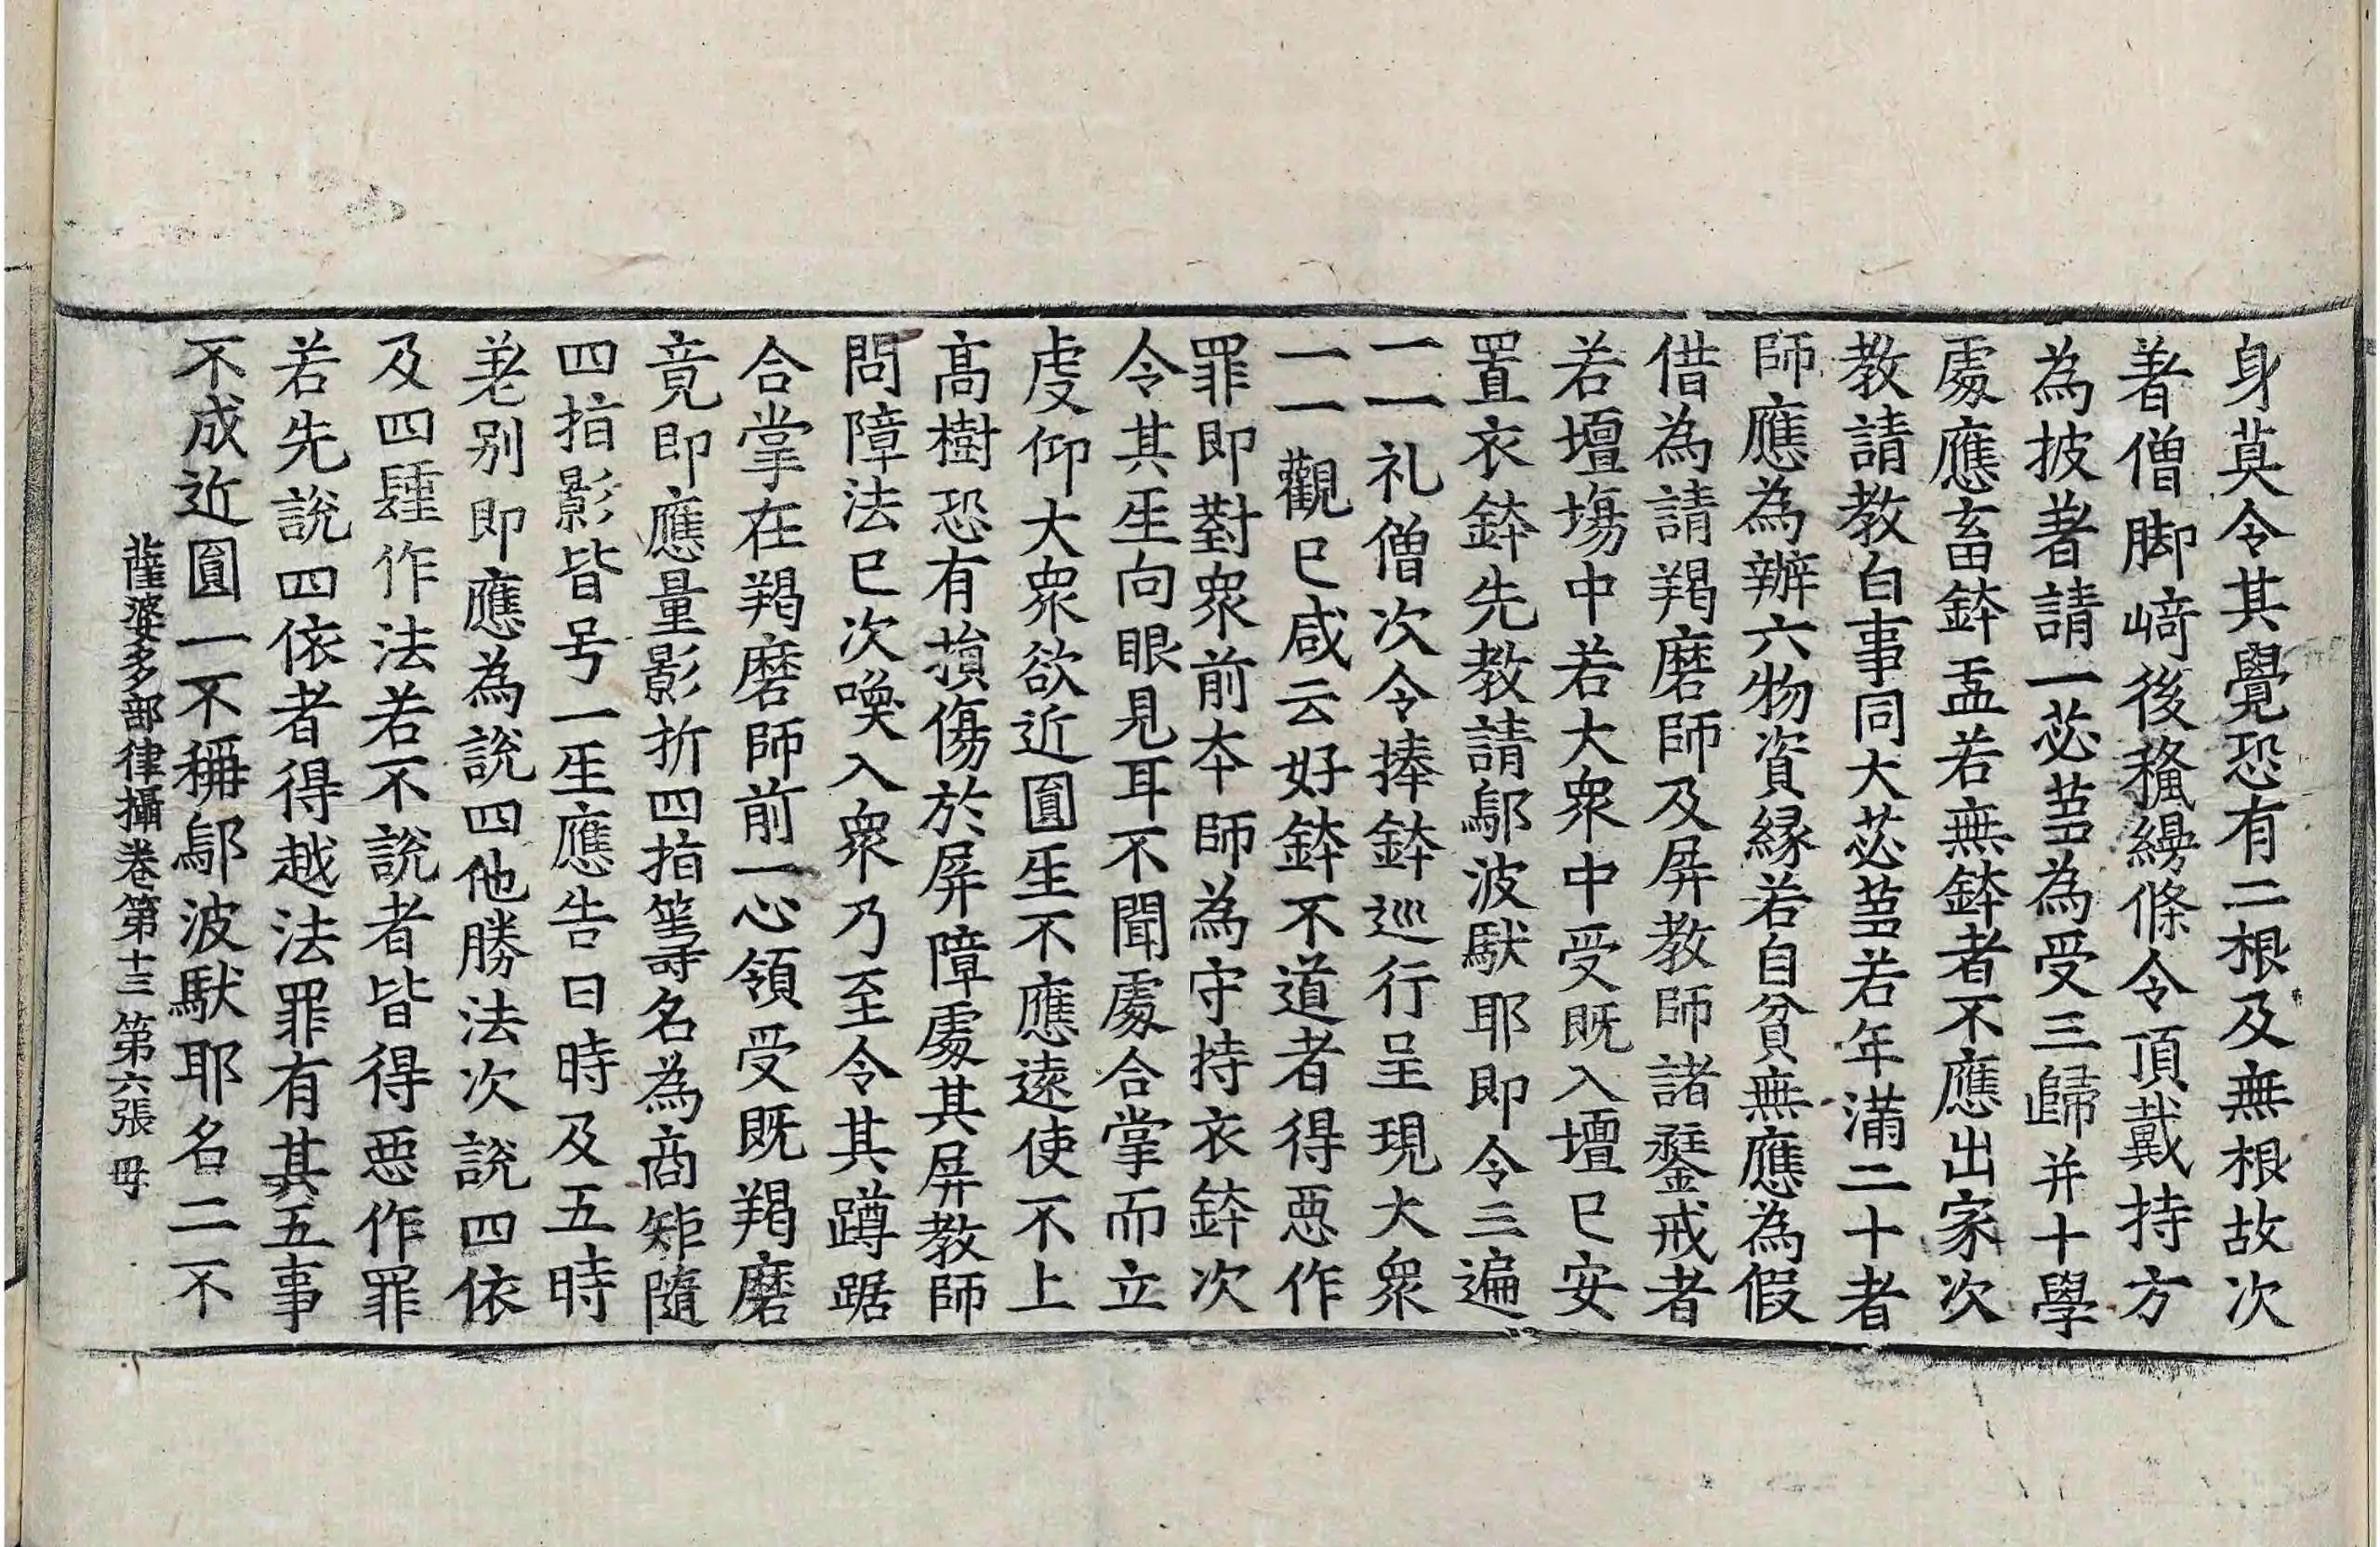 身莫令其覺恐有二根及無根故次
著僧脚崎後繫縵絛令頂戴持方
為披著請一苾芻為受三歸并十學
處應畜鉢盂若無鉢者不應出家次
教請教白事同大苾芻若年滿二十者
師應為辦六物資緣若自貧無應為假
借為請羯磨師及屏教師諸鏧戒者
若壇場中若大眾中受既入壇已安
置衣鉢先教請鄔波馱耶即令三遍
一一礼僧次令捧鉢巡行呈現大眾
一一觀已咸云好鉢不道者得惡作
罪即對眾前本師為守持衣鉢次
令其生向眼見耳不聞處合掌而立
虔仰大眾欲近圓生不應遠使不上
高樹恐有損傷於屏障處其屏教師
問障法已次喚入眾乃至令其蹲踞
合掌在羯磨師前一心領受既羯磨
竟即應量影折四指籌名為商矩隨
四指影皆号一生應告日時及五時
差別即應為說四他勝法次說四依
及四種作法若不說者皆得惡作罪
若先說四依者得越法罪有其五事
不成近圓一不稱鄔波馱耶名二不
薩婆多部律攝卷第十三 第六張 毋